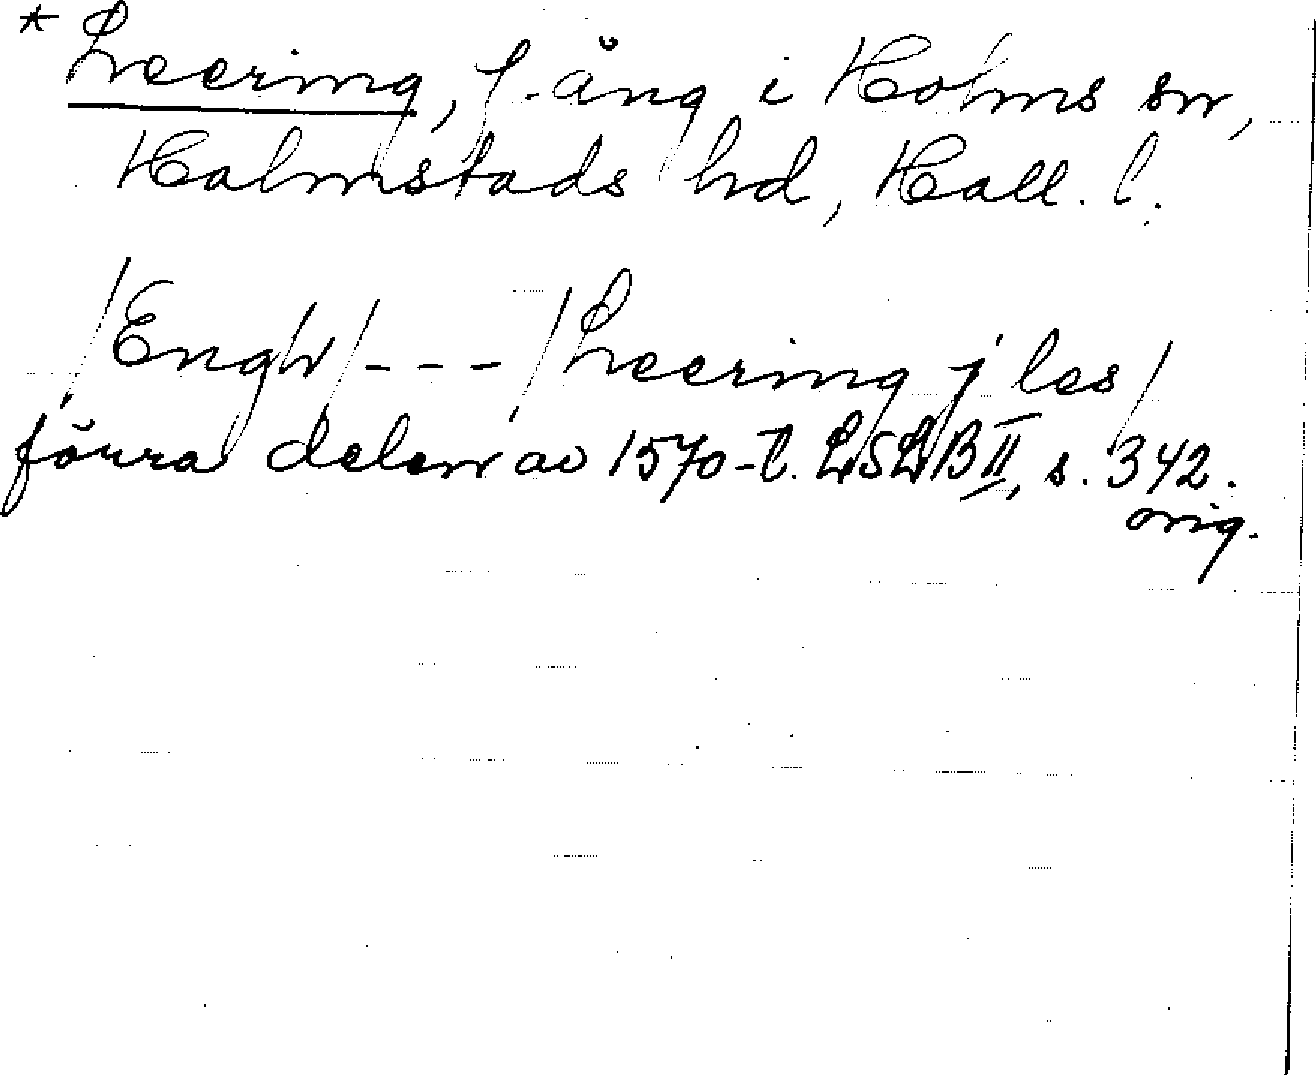 * Leering, f. äng i Holms sn,
Halmstads hd, Hall. l.
/Engh/ - - - /Leering j les/
förra delen av 1570-t. LSLB II, s. 342.
orig.